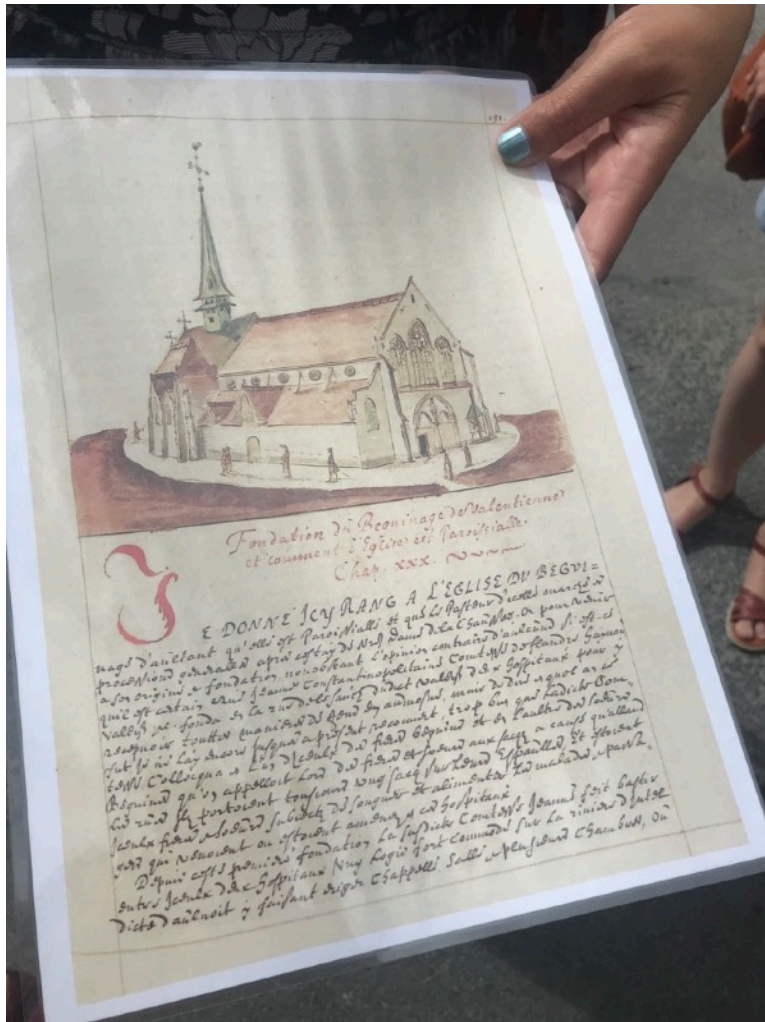 191.
Fondation du Beguinage de Valentienne
et comment l'Eglise est Paroissialle.
Chap. xxx.
JE DONNE ICY RANG A L'EGLISE DU BEGUI=
nage d'aultant qu'elle est Paroissialle et que le Pasteur d'icelle marche es
processions generalles apres celuy de Nre Dame de la Chaussee. Or pour venir
a son origine et fondation nonobstant l'opinion contraire d'aulcuns si est ce
qu'il est certain que Jeanne Constantinopolitaine Comtesse de Flandre Haynau
Vallen. fonda en la rue dudict Vallen. deux hospitaux pour y
recepvoir touttes manieres de
fut je ne lay encore jusques a present recouvert, trop bien que ladicte Com=
tesse Collocqua en l'un d'iceulx des freres Beguins et en l'aultre des soeurs
Beguines qu'on appelloit lors des freres et soeurs aux sacqs a cause qu'allans
les rues ils portoient tousjours ung sacq sur leurs Espaulles. Et estoient
iceulx freres et soeurs subiects de songner et alimenter les malades et passa=
gers qui venoient ou estoient amenez en ces hospitaux.
Depuis ceste premiere fondation la susdicte Comtesse Jeanne feit bastir
entre iceulx deux hospitaux ung logis fort commode sur la riviere
dicte d'aulnoit y faisant eriger Chappelle Salle et plusieurs Chambres, ou